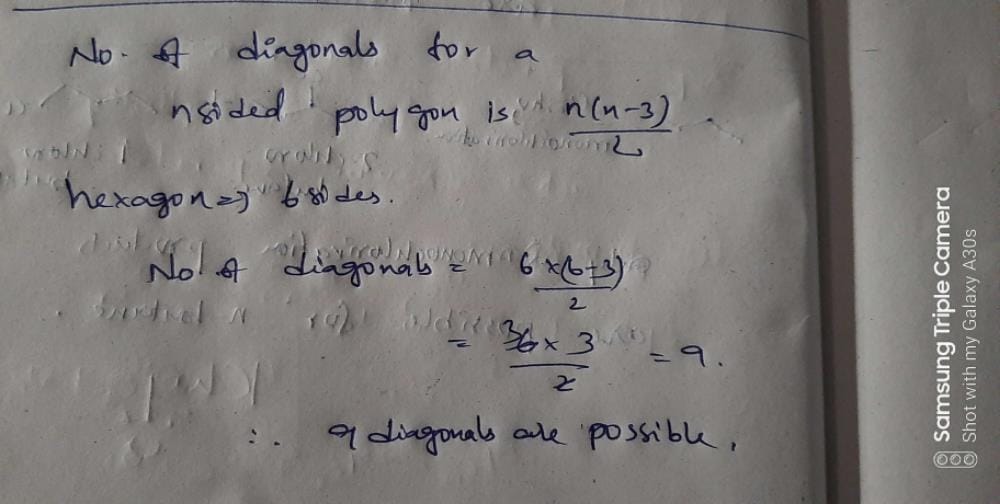 No. of diagonals for a
nsided polygon is n(n-3)/2
hexagon => 6 sides.
No. of diagonals = 6×(6-3)/2
= 6×3/2 = 9.
∴ 9 diagonals are possible.
Samsung Triple Camera
Shot with my Galaxy A30s